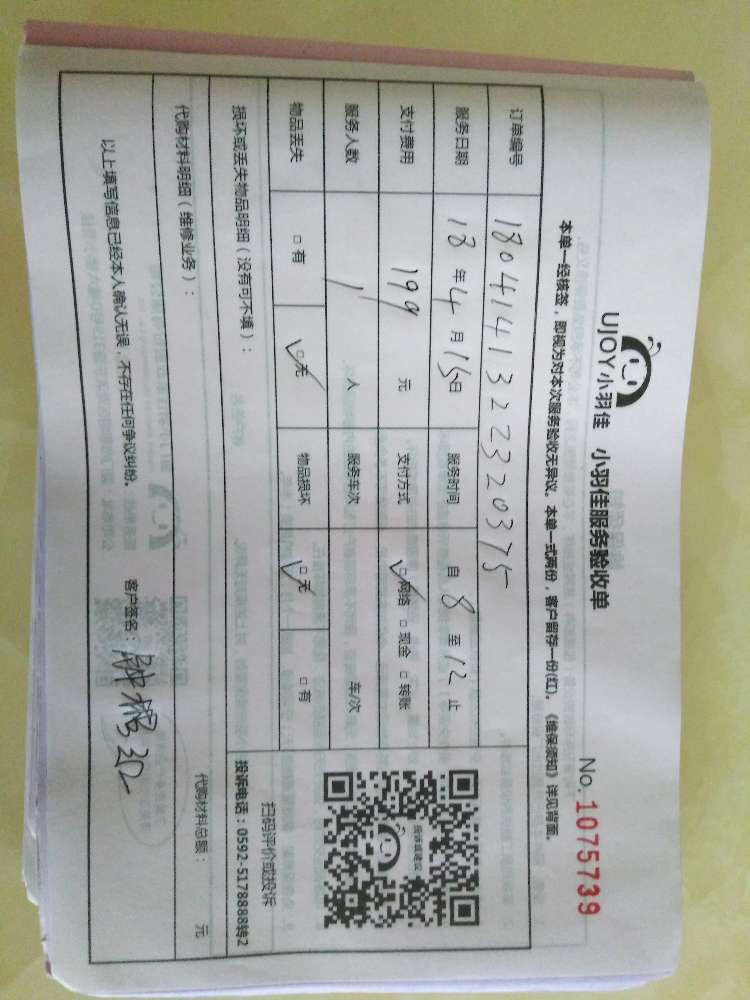 UJOY小羽佳 小羽佳服务验收单
No.1075739
本单一经核签，即视为对本次服务验收无异议。本单一式两份，客户留存一份(红)。《维保须知》详见背面。
订单编号 1804141322320375
服务日期 18年4月15日 服务时间 自8至12止
支付费用 199 元 支付方式 □网络 □现金 □转账
服务人数 1 人 服务车次 车/次
物品丢失 □有 □无 物品损坏 □无 □有
投诉或建议
扫码评价或投诉
投诉电话：0592-5178888转2
损坏或丢失物品明细（没有可不填）：
代购材料明细（维修业务）： 代购材料总额： 元
以上填写信息已经本人确认无误，不存在任何争议纠纷。 客户签名：